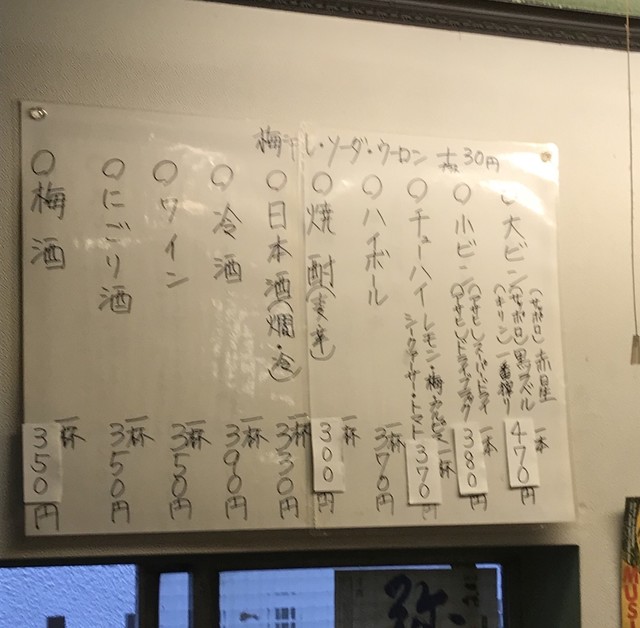 梅干し・ソーダ・ウーロン 30円
○大ビン (サッポロ)赤星
(サッポロ)黒ラベル
(キリン)一番搾り
一本
470円
○小ビン (アサヒ)スーパードライ
(アサヒ)ドライブラック
一本
380円
○チューハイ レモン・梅・カルピス
シークヮーサー・トマト
一杯
370円
○ハイボール
370円
○焼酎(麦・芋)
一杯
300円
○日本酒(燗・冷)
一杯
330円
○冷酒
一杯
390円
○ワイン
一杯
350円
○にごり酒
一杯
350円
○梅酒
一杯
350円
弥
MUSI